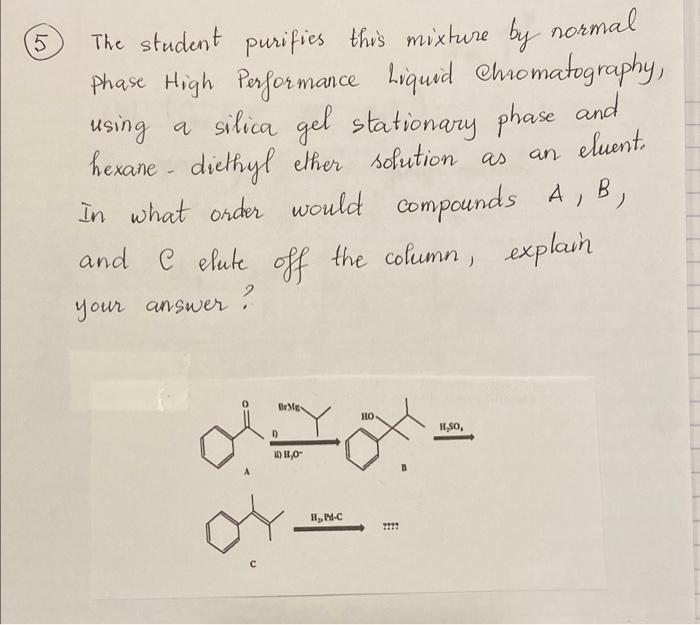 5 The student purifies this mixture by normal
phase High Performance Liquid Chromatography,
using a silica gel stationary phase and
hexane - diethyl ether solution as an eluent.
In what order would compounds A, B,
and C elute off the column, explain
your answer?
O
BrMg
HO
H₂SO₄
i)
ii) H₃O⁻
A
B
H₂, Pd-C
????
C